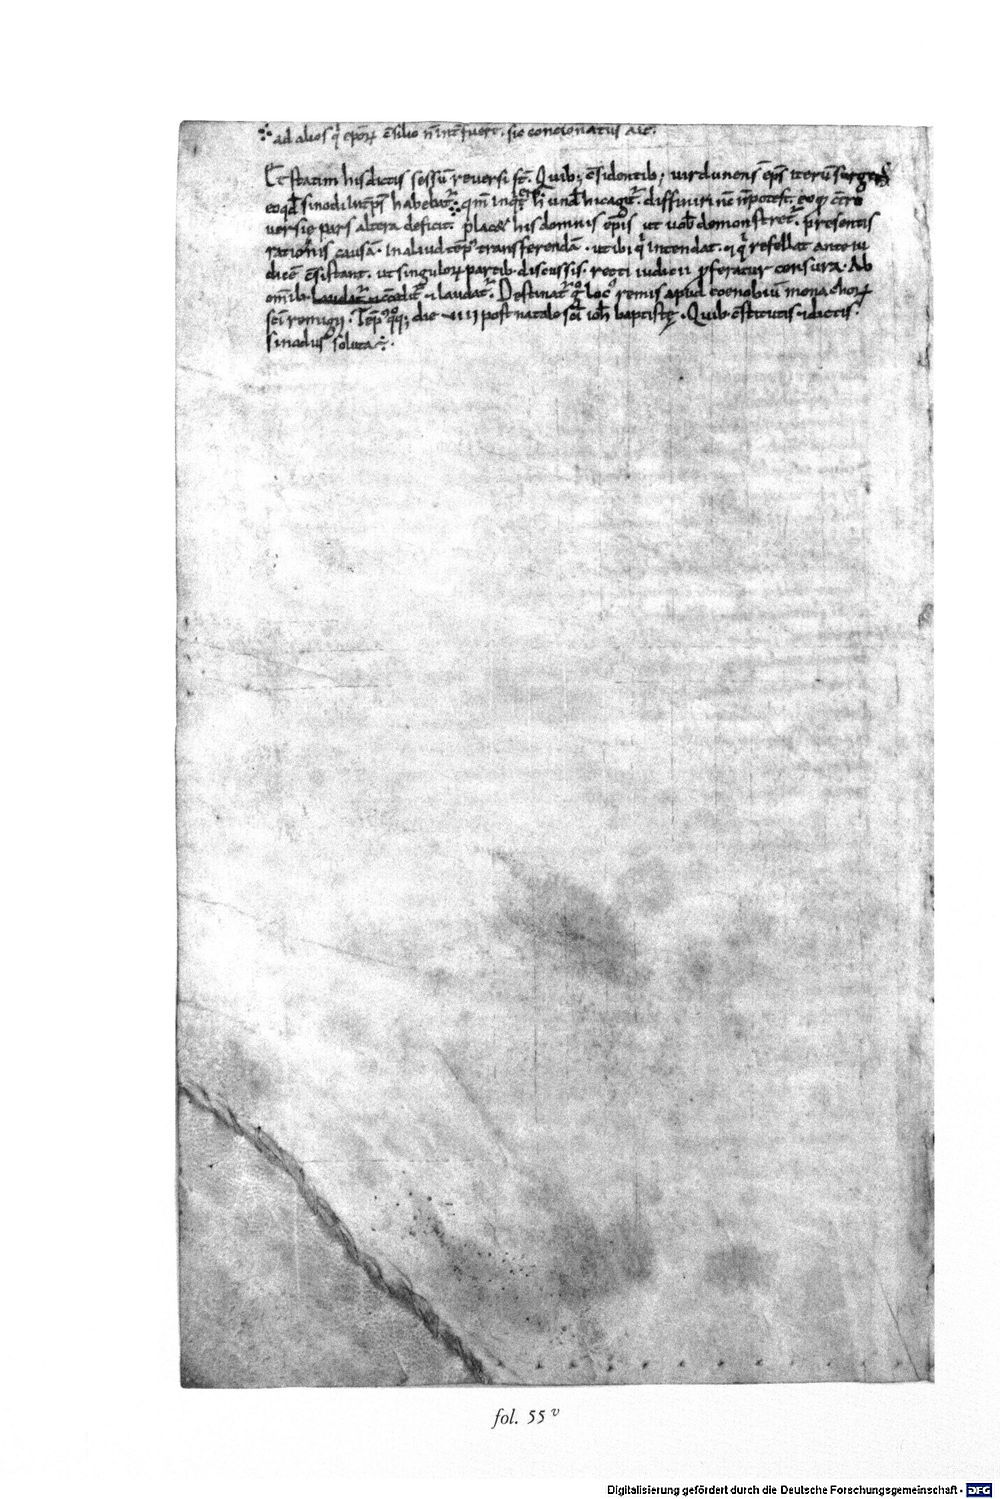 ad alios q epōꝝ c̄silio n̄ int̄fuer̄t. sic concionatus ait.
Et statim his dictis sessū reversi st̄. Quib; c̄sidentib; virdunensis ep̄s iterū surgens
eo qd̄ sinodi int̄p̄s habebat̄. qm̄ inq̄t h̄ und̄ hic agit̄. diffiniri nc̄ n̄ potest. eo q c̄tro
versie pars altera deficit. placet his domnis ep̄is ut vob̄ demonstret̄. presentis
rationis causā. in aliud tēp transferendā. ut ibi q intendat. et q refellat ante iu
dicē c̄sistant. ut singuloꝝ partib. discussis. recti iudicii proferatur censura. Ab
om̄ib. laudat̄ et laudat̄. Destinat̄ g loc remis apud coenobiū monachoꝝ
sc̄i remigii. Tēp q;q; die IIII post natale sc̄i ioh̄ baptistę. Quib. c̄stitutis et dictis.
sinodus soluta ÷.
fol. 55 v
Digitalisierung gefördert durch die Deutsche Forschungsgemeinschaft - DFG